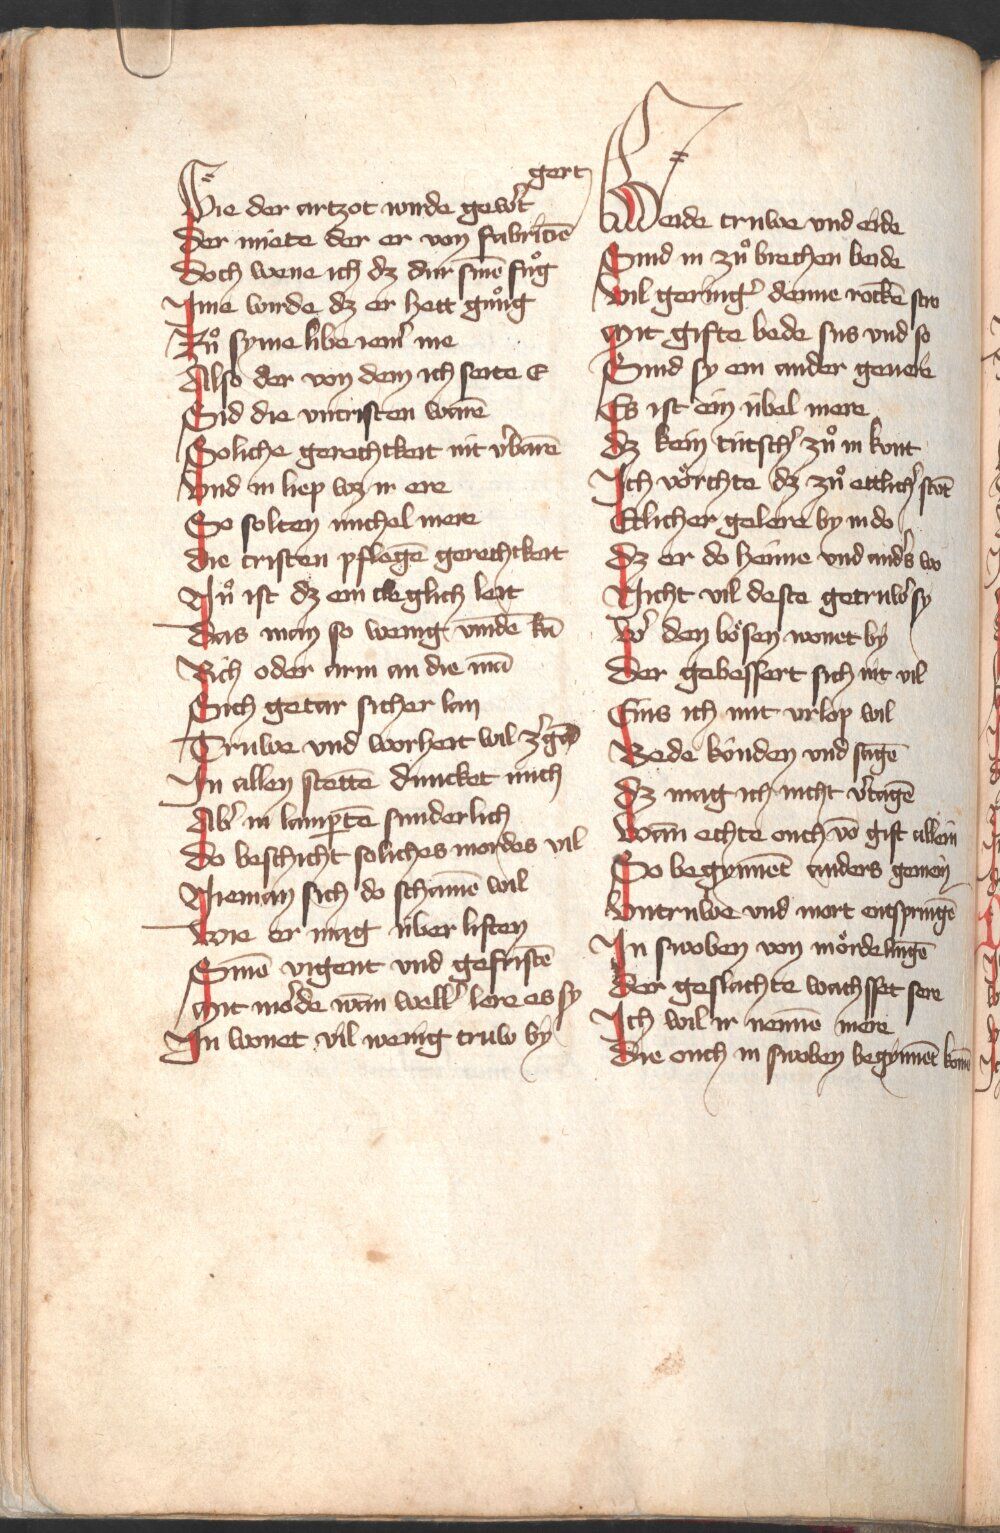 gert
Wie der artzot wurde gewˀt
Der miete der er von fabricie̅
Doch wene ich dz dur sine̅ fuͦg
Ime wurde dz er hett gnuͦg
Zuͦ syme libe iemˀ me
Also der von dem ich seite E
Sid die vncristen ware̅
Soliche gerechtkeit nit vˀbare̅
Vnd in liep wz ir ere
So solten michel mere
Die cristen pflege̅ gerechtkeit
Nuͦ ist dz ein cleglich leit
Das man so wenig vinde̅ ka̅
Rich oder arm an die ma̅
Sich getar sicher lan
Truwe vnd worheit wil zˀga̅
In allen stette̅ duncket mich
Abˀ in lamparte̅ sunderlich
Do beschicht soliches mordes vil
Nieman sich do schame̅ wil
Wie er mag über listen
Sine̅ vigent vnd gefriste̅
Mit morde wan wellˀ lere es sy
In wonet vil wenig truw by
Beide truwe vnd eide
Sind in zuͦ brechen beide
Vil geringˀ denne rocke̅ stro
Mit gifte bede sus vnd so
Sind sy ein ander gevere
Es ist ein übel mere
Dz kein tütschˀ zuͦ in kont
Ich voͤrchte dz zuͦ ettlichˀ stot
Etlicher gelere by in do
Dz er do heime vnd andˀs wo
Nicht vil deste getruwˀ sy
Wˀ den boͤsen wonet by
Der gebessert sich nit vil
Eins ich mit vrlop wil
Bede künden vnd sage̅
Dz mag ich nicht vˀtage̅
Wan echte ouch vo̅ gift allein
So begynnet anders gemein
Vntruwe vnd mort entspringe̅
In swoben von moͤrdelinge̅
Der geslachte wachsset sere
Ich wil ir nenne̅ mere
Die ouch in swoben begynnet kome̅